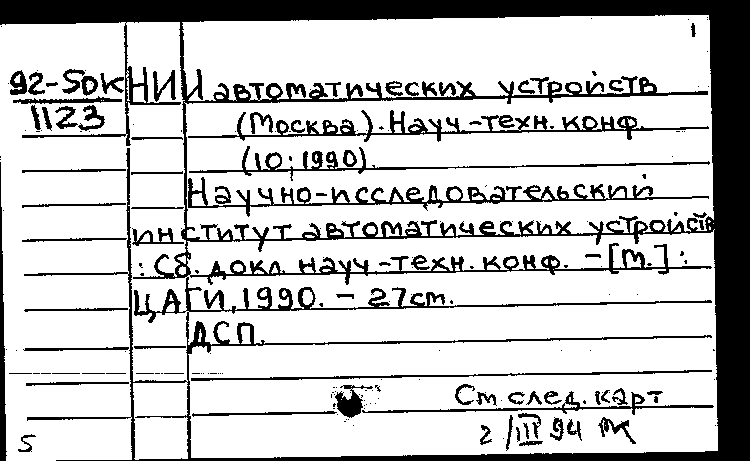 1
92-SDK НИИ автоматических устройств
1123 (Москва). Науч.-техн. конф.
(10; 1990).
Научно-исследовательский
институт автоматических устройств
: Сб. докл. науч.-техн. конф. - [М.] :
ЦАГИ, 1990. - 27см.
ДСП.
См след. карт
5 2/III 94